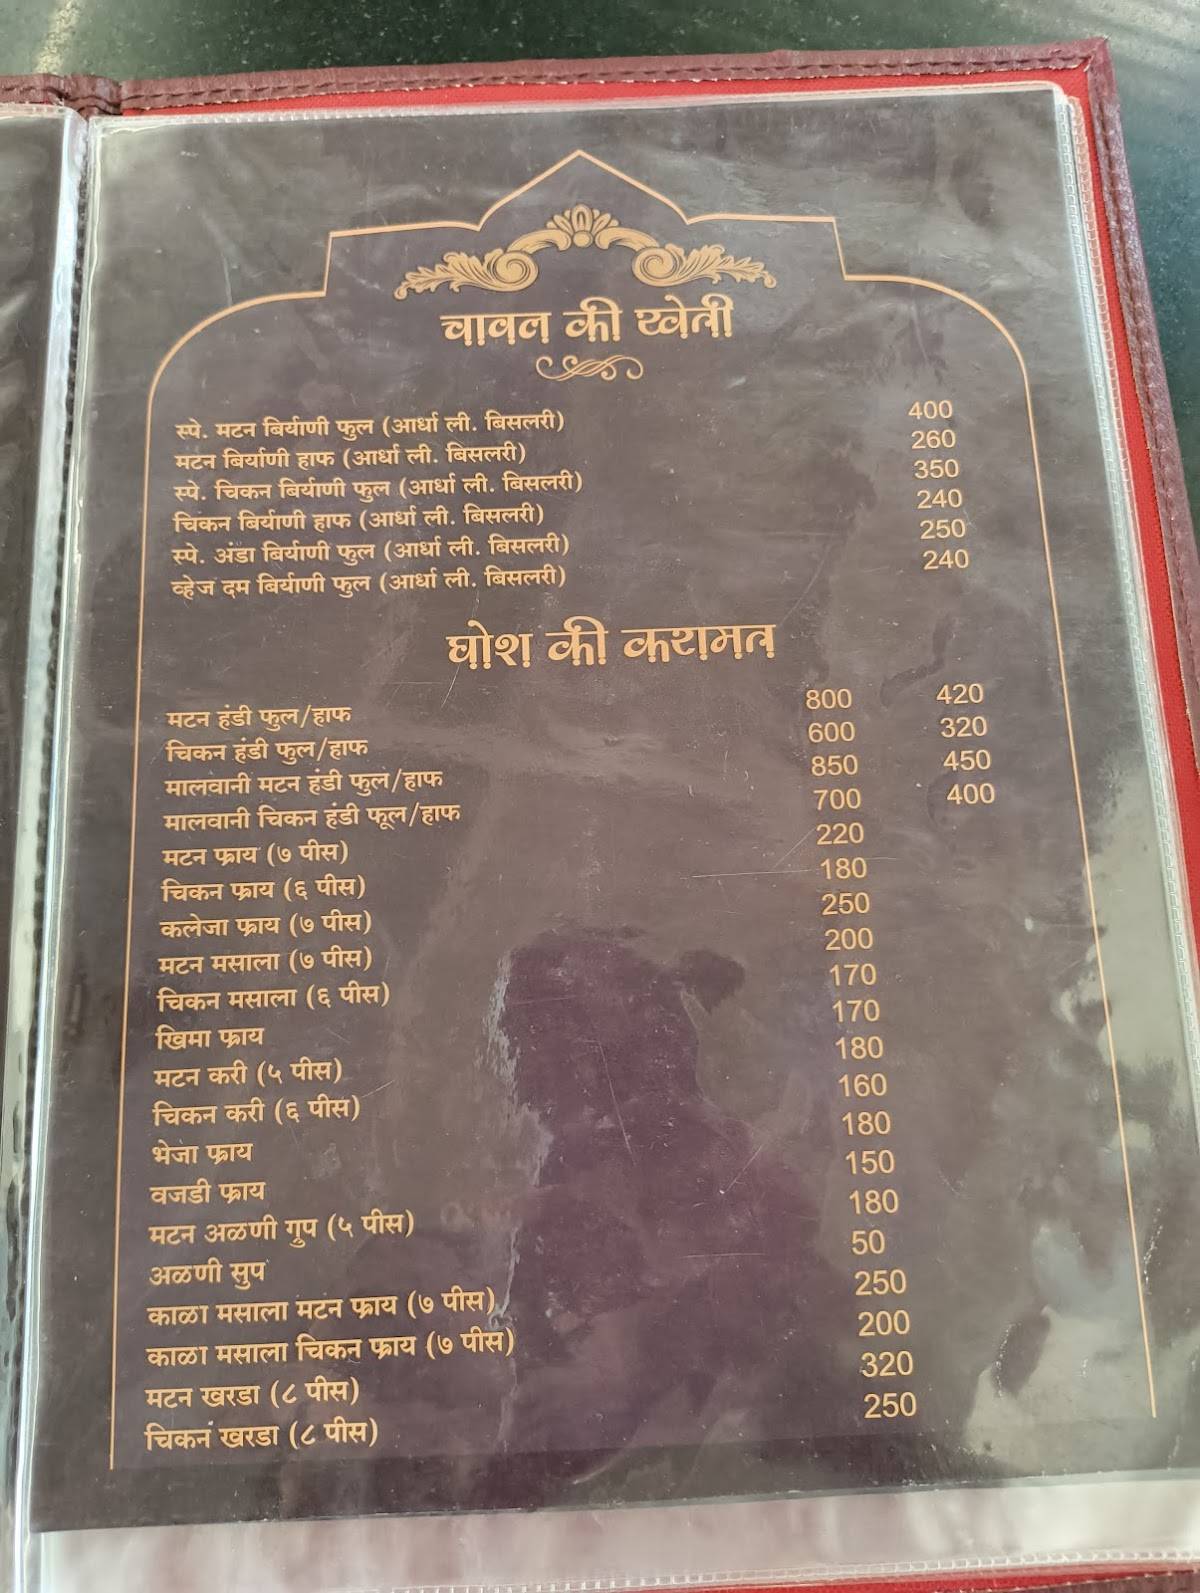 चावल की खेती
स्पे. मटन बिर्याणी फुल (आर्धा ली. बिसलरी) 400
मटन बिर्याणी हाफ (आर्धा ली. बिसलरी) 260
स्पे. चिकन बिर्याणी फुल (आर्धा ली. बिसलरी) 350
चिकन बिर्याणी हाफ (आर्धा ली. बिसलरी) 240
स्पे. अंडा बिर्याणी फुल (आर्धा ली. बिसलरी) 250
व्हेज दम बिर्याणी फुल (आर्धा ली. बिसलरी) 240
घोश की करामत
मटन हंडी फुल/हाफ 800 420
चिकन हंडी फुल/हाफ 600 320
मालवानी मटन हंडी फुल/हाफ 850 450
मालवानी चिकन हंडी फूल/हाफ 700 400
मटन फ्राय (७ पीस) 220
चिकन फ्राय (६ पीस) 180
कलेजा फ्राय (७ पीस) 250
मटन मसाला (७ पीस) 200
चिकन मसाला (६ पीस) 170
खिमा फ्राय 170
मटन करी (५ पीस) 180
चिकन करी (६ पीस) 160
भेजा फ्राय 180
वजडी फ्राय 150
मटन अळणी गुप (५ पीस) 180
अळणी सुप 50
काळा मसाला मटन फ्राय (७ पीस) 250
काळा मसाला चिकन फ्राय (७ पीस) 200
मटन खरडा (८ पीस) 320
चिकन खरडा (८ पीस) 250